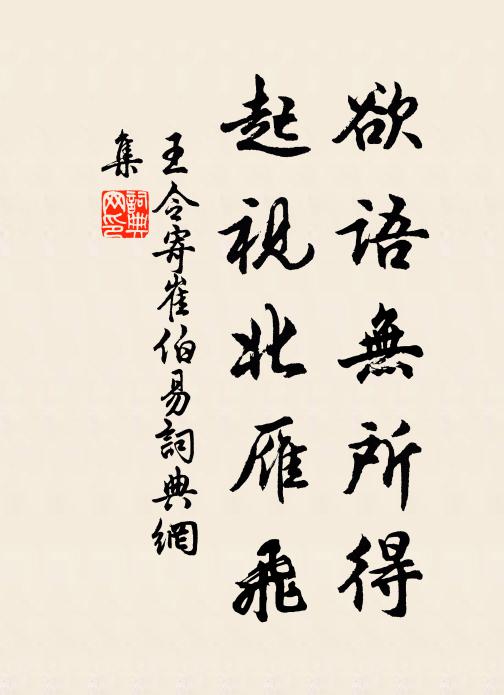 欲語無所得
起視北雁飛
王令寄崔伯易詞典網
集
詞典網印